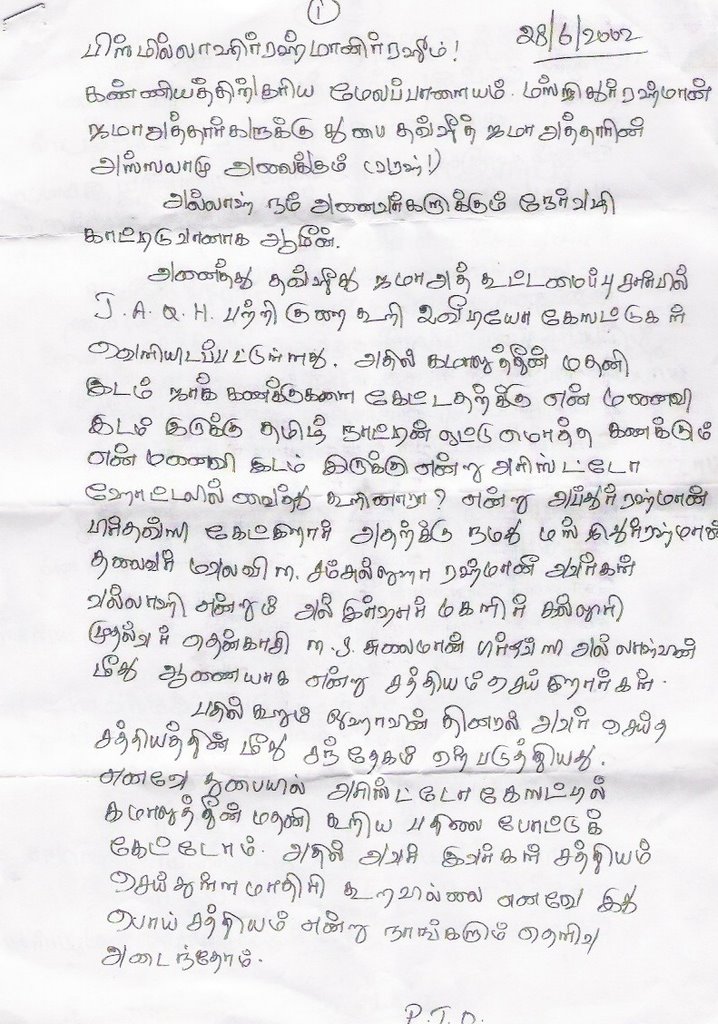 1
28/6/2002
பிஸ்மில்லாஹிர்ரஹ்மானிர்ரஹீம்!
கண்ணியத்திற்குரிய மேலப்பாளையம். மஸ்ஜிதுர்ரஹ்மான்
ஜமாஅத்தார்களுக்கு துபை தவ்ஹீத் ஜமாஅத்தாரின்
அஸ்ஸலாமு அலைக்கும் (வரஹ்!)
அல்லாஹ் நம் அனைவர்களுக்கும் நேர்வழி
காட்டிடுவானாக ஆமீன்.
அனைத்து தவ்ஹீது ஜமாஅத் கூட்டமைப்பு சார்பில்
J.A.Q.H. பற்றி குறை கூறி வீடியோ கேஸட்டுகள்
வெளியிடப்பட்டுள்ளது. அதில் கமாலுத்தீன் மதனி
இடம் ஜாக் கணக்குகளை கேட்டதற்க்கு என் மனைவி
இடம் இருக்கு தமிழ் நாட்டின் ஒட்டு மொத்த கணக்கும்
என் மனைவி இடம் இருக்கு என்று அரிஸ்ட்டோ
ஹோட்டலில் வைத்து கூறினாரா? என்று அப்துர்ரஹ்மான்
பிர்தவ்ஸி கேட்கிறார் அதற்க்கு நமது மஸ்ஜிதுர்ரஹ்மான்
தலைவர் மவ்லவி m. சம்சுல்லுஹா ரஹ்மானி அவர்கள்
வல்லாஹி என்றும் அல் இர்ஷாத் மகளிர் கல்லூரி
முதல்வர் தென்காசி m.s. சுலைமான் பிர்தவ்ஸி அல்லாஹ்வின்
மீது ஆணையாக என்று சத்தியம் செய்கிறார்கள்.
பதில் கூறும் லுஹாவின் திணறல் அவர் செய்த
சத்தியத்தின் மீது சந்தேகம் ஏற்படுத்தியது.
எனவே துபையில் அரிஸ்ட்டோ கேஸட்டில்
கமாலுத்தீன் மதனி கூறிய பதிலை போட்டுக்
கேட்டோம். அதில் அவர் இவர்கள் சத்தியம்
செய்துள்ள மாதிரி கூறவில்லை எனவே இது
பொய் சத்தியம் என்று நாங்களும் தெளிவு
அடைந்தோம்.
P.T.O.